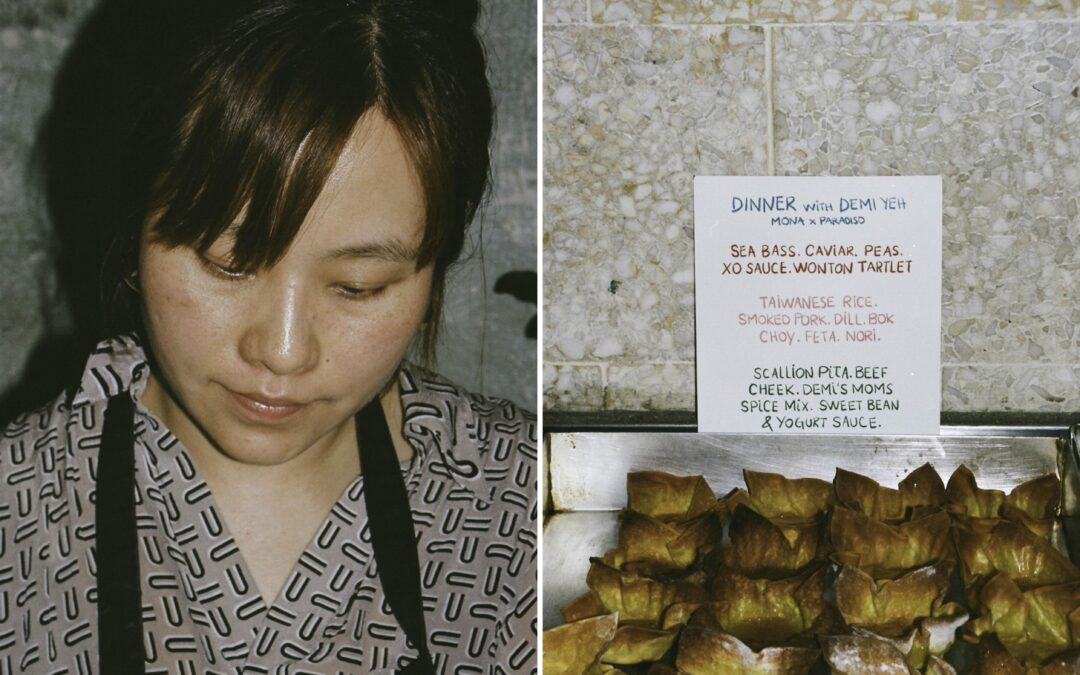 DINNER WITH DEMI YEH
MONA x PARADISO
SEA BASS. CAVIAR. PEAS.
XO SAUCE. WONTON TARTLET
TAIWANESE RICE.
SMOKED PORK. DILL. BOK
CHOY. FETA. NORI.
SCALLION PITA. BEEF
CHEEK. DEMI'S MOMS
SPICE MIX. SWEET BEAN
& YOGURT SAUCE.